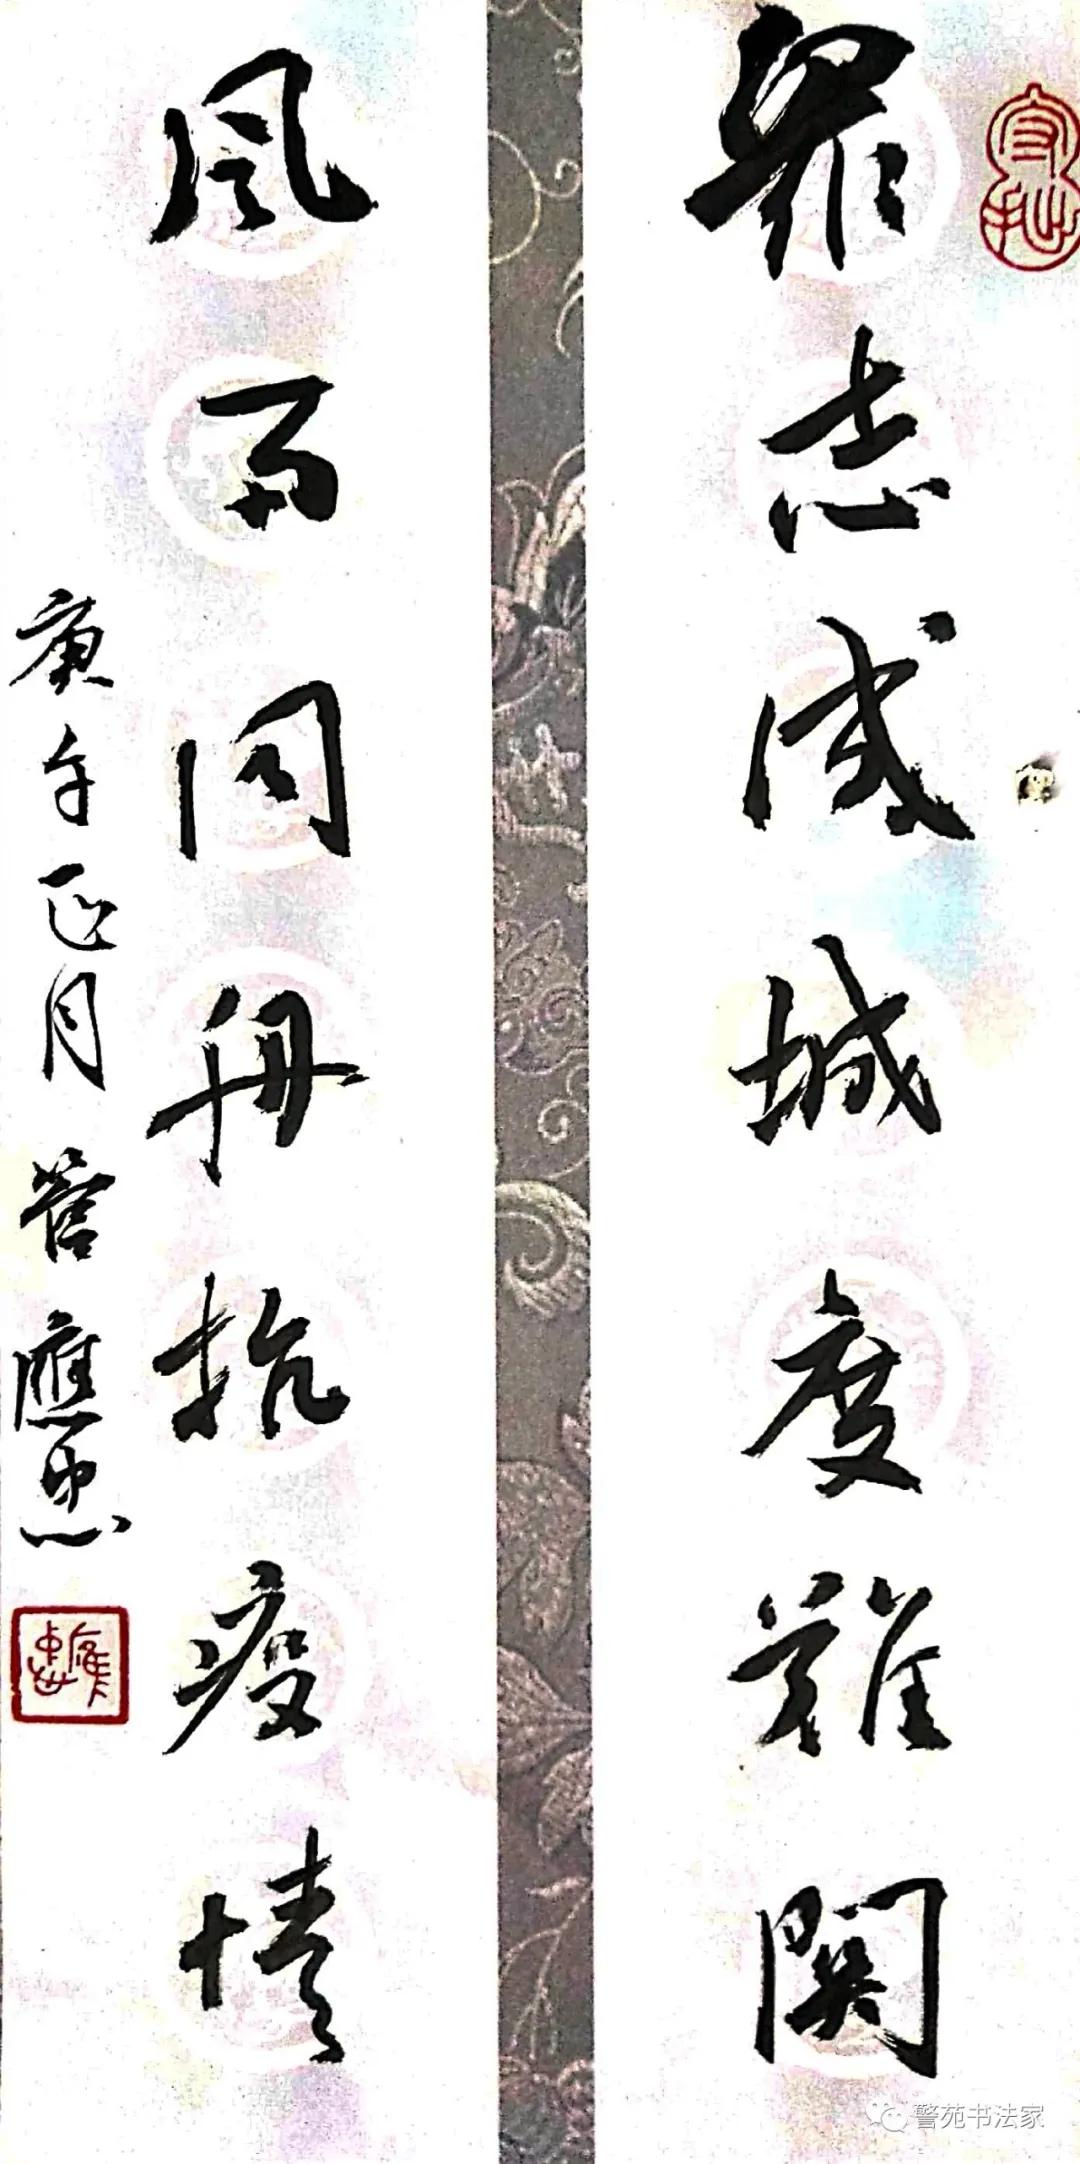 眾志成城度難関
風雨同舟抗疫情
庚子正月 管應忠
守拙
應忠
警苑书法家